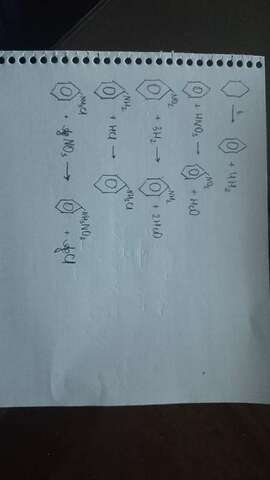 → + 4H₂
+ HNO₃ → NO₂ + H₂O
NO₂ + 3H₂ → NH₂ + 2H₂O
NH₂ + HCl → NH₃Cl
NH₃Cl + AgNO₃ → + AgCl